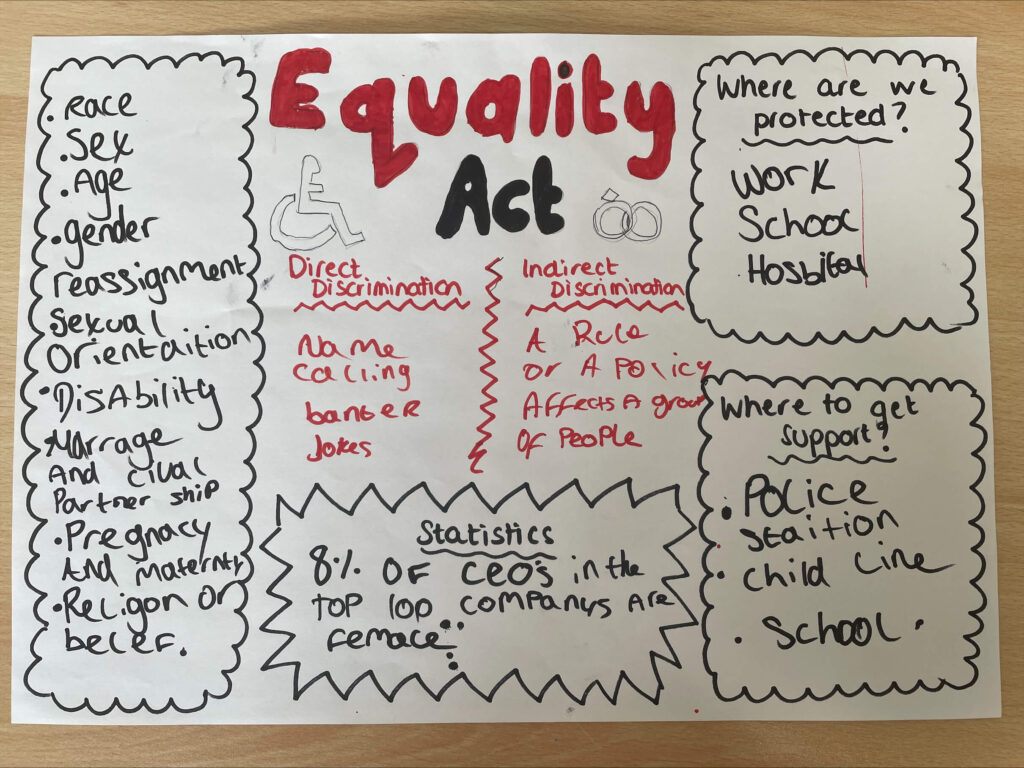 Equality
Act
. Race
. Sex
. Age
. gender
reassignment
Sexual
Orientaition
. Disability
. Marrage
And Cival
Partner ship
. Pregnancy
And maternity
. Religon or
belief.
Direct
Discrimination
Name
calling
banter
Jokes
Indirect
Discrimination
A Rule
or A Policy
Affects A group
of People
Statistics
8% of CEO's in the
top 100 companys are
female
Where are we
protected?
Work
School
Hosbital
Where to get
support?
. Police
staition
. Child Line
. School .